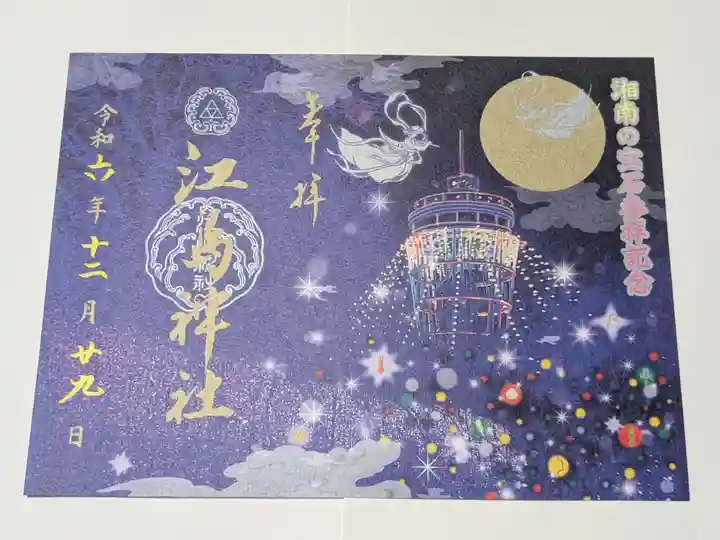 湘南の宝石参拝記念
奉拝
江島神社
令和六年十二月廿九日